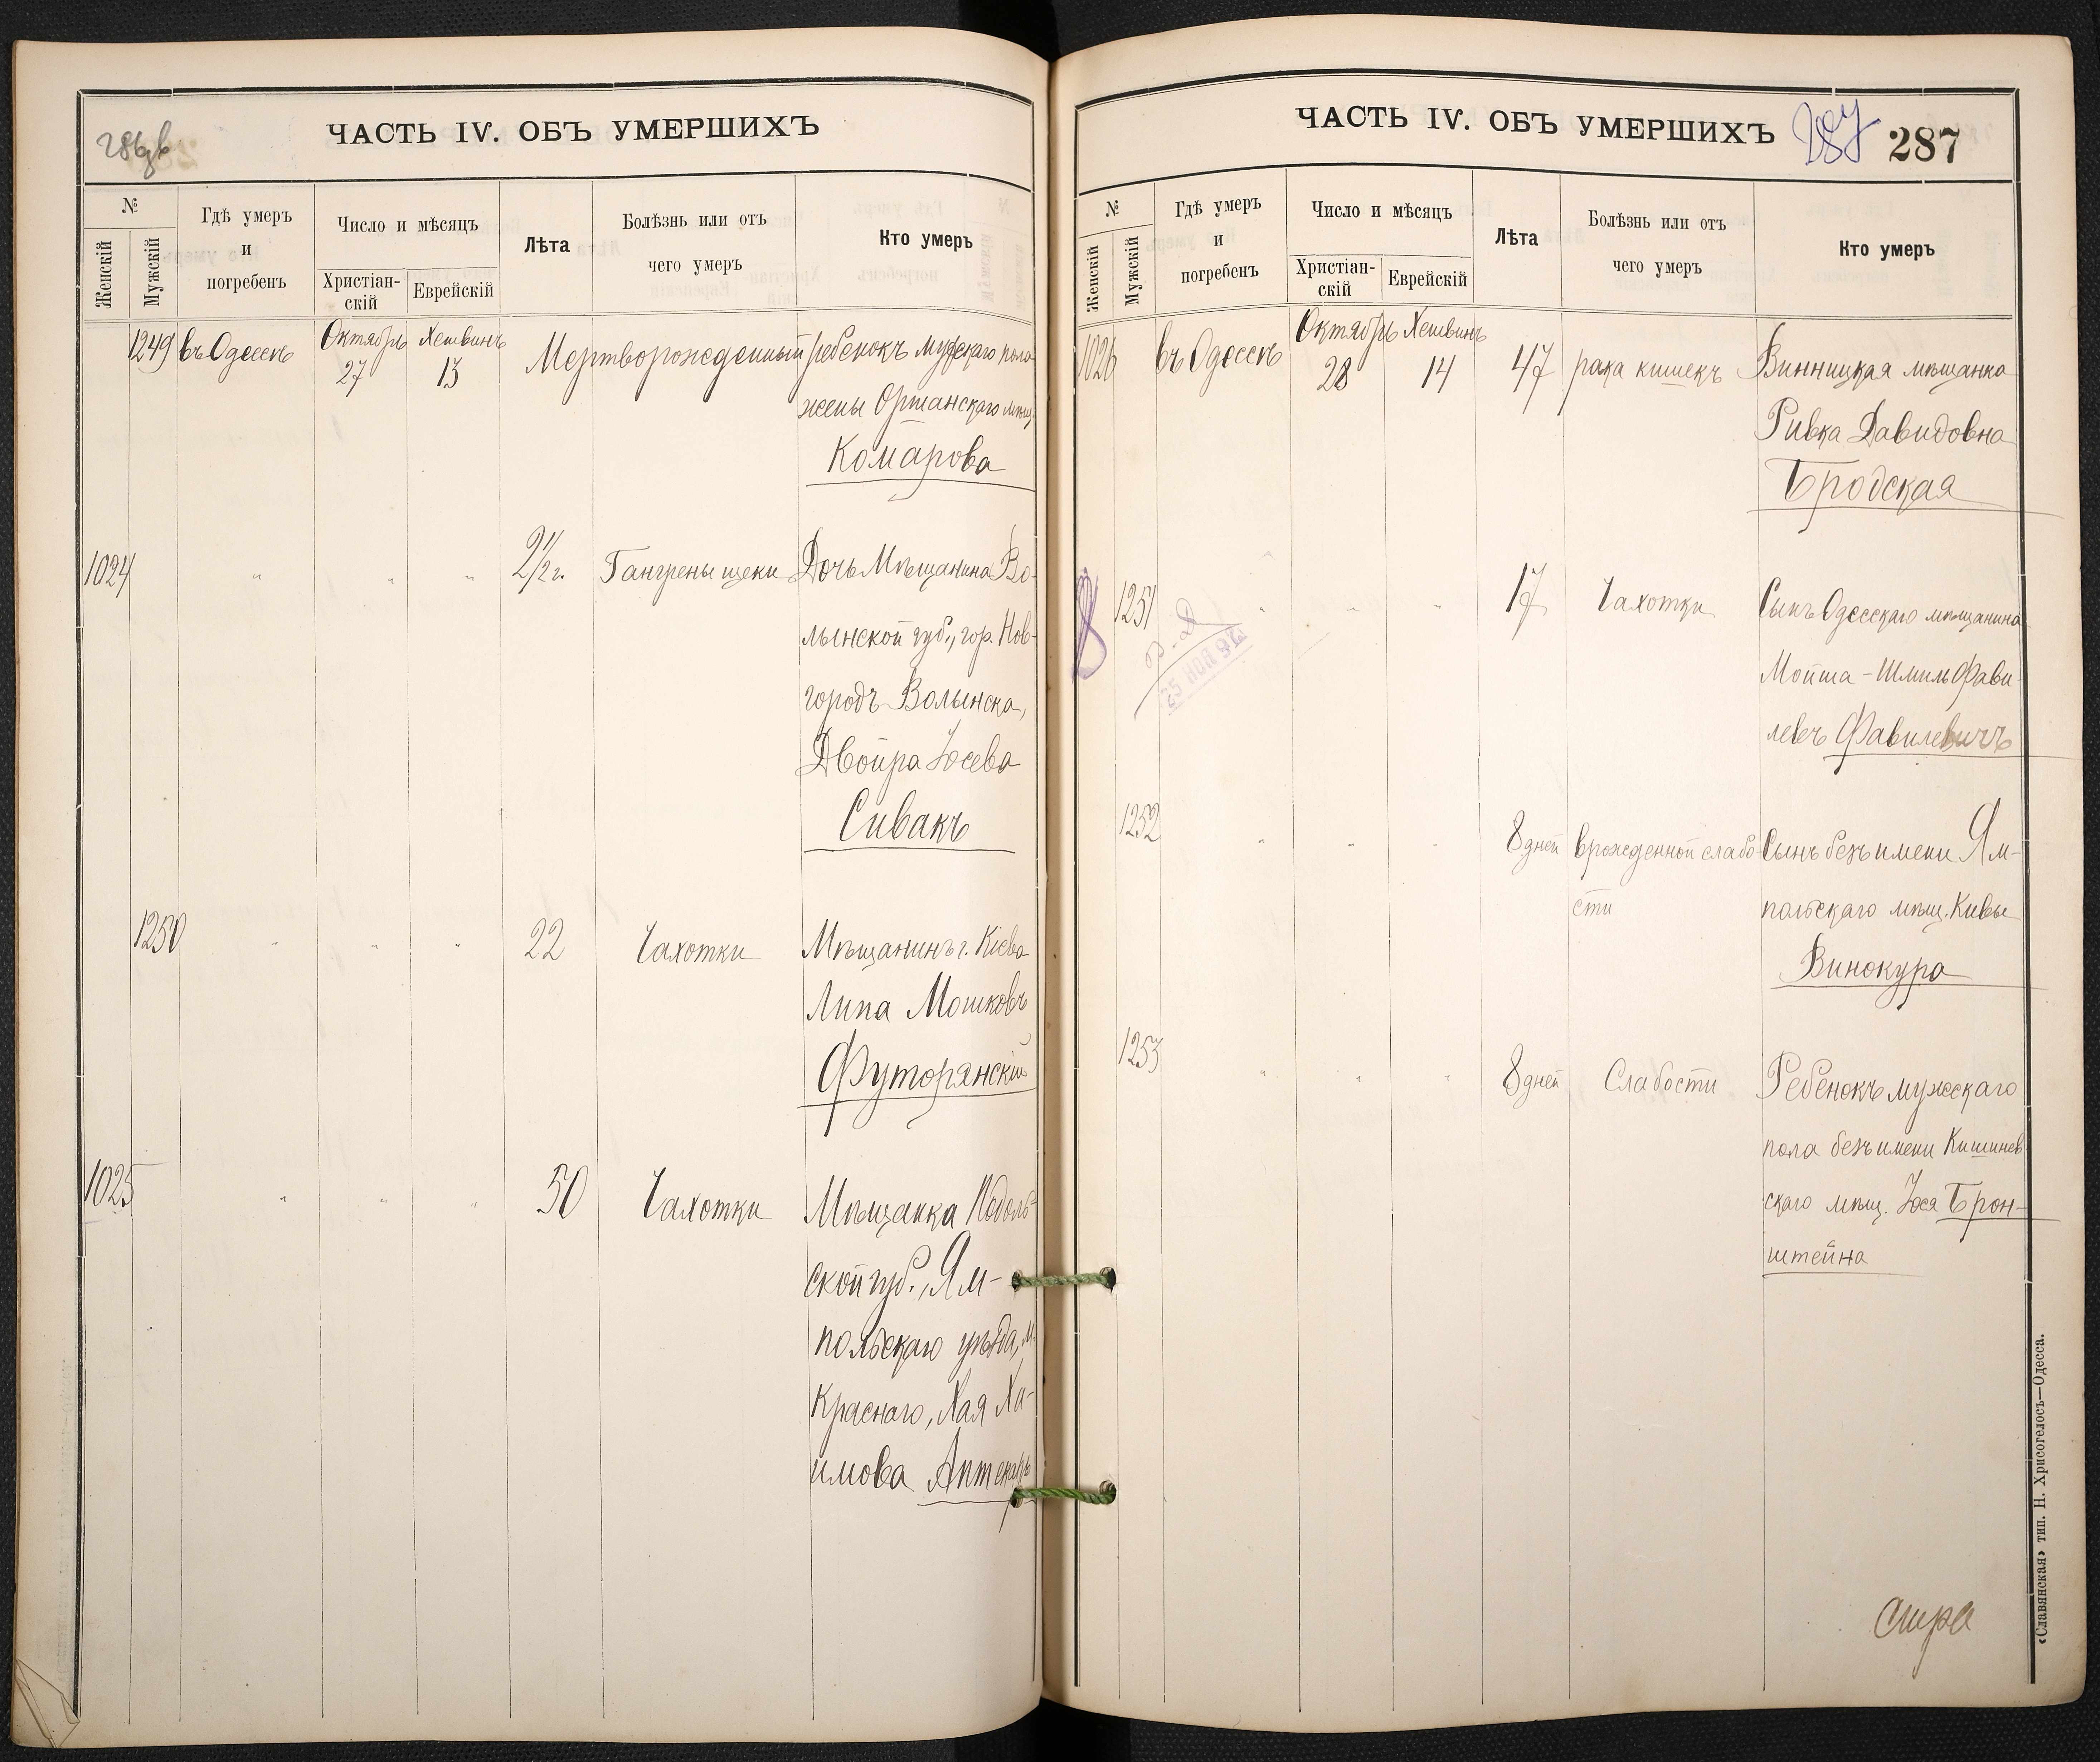 ЧАСТЬ IV. ОБЪ УМЕРШИХЪ
№
Женскій
Мужскій
Гдѣ умеръ
и
погребенъ
Число и мѣсяцъ
Христіан-
скій
Еврейскій
Лѣта
Болѣзнь или отъ
чего умеръ
Кто умеръ
1249 въ Одессѣ Октябрь 27 Хешвинъ 13 Мертворожденный ребенокъ мужскаго пола
жены Оршанскаго мѣщ.
Комарова
1024 " " " 2 1/2 г. Гангрены щеки Дочь Мѣщанина Во-
лынской губ., гор. Нов-
городъ-Волынска,
Двойра Іосева
Сивакъ
1250 " " " 22 Чахотки Мѣщанинъ г. Кіева
Липа Мошковъ
Футорянскій
1025 " " " 50 Чахотки Мѣщанка Подоль-
ской губ., Ям-
польскаго уѣзда, м.
Краснаго, Хая Ха-
имова Аптекарь
ЧАСТЬ IV. ОБЪ УМЕРШИХЪ
287
287
№
Женскій
Мужскій
Гдѣ умеръ
и
погребенъ
Число и мѣсяцъ
Христіан-
скій
Еврейскій
Лѣта
Болѣзнь или отъ
чего умеръ
Кто умеръ
1026 въ Одессѣ Октябрь 28 Хешвинъ 14 47 рака кишекъ Винницкая мѣщанка
Ривка Давидовна
Бродская
1251 " " " 17 Чахотки Сынъ Одесскаго мѣщанина
25 НОЯ 92
Мойша-Шмиль Фави-
левъ Фавилевичъ
1252 " " " 8 дней врожденной слабо- Сынъ безъ имени Ям-
сти польскаго мѣщ. Кивы
Винокура
1253 " " " 8 дней Слабости Ребенокъ мужскаго
пола безъ имени Кишинев-
скаго мѣщ. Іося Брон-
штейна
«Славянская» тип. Н. Хрисогелосъ—Одесса.